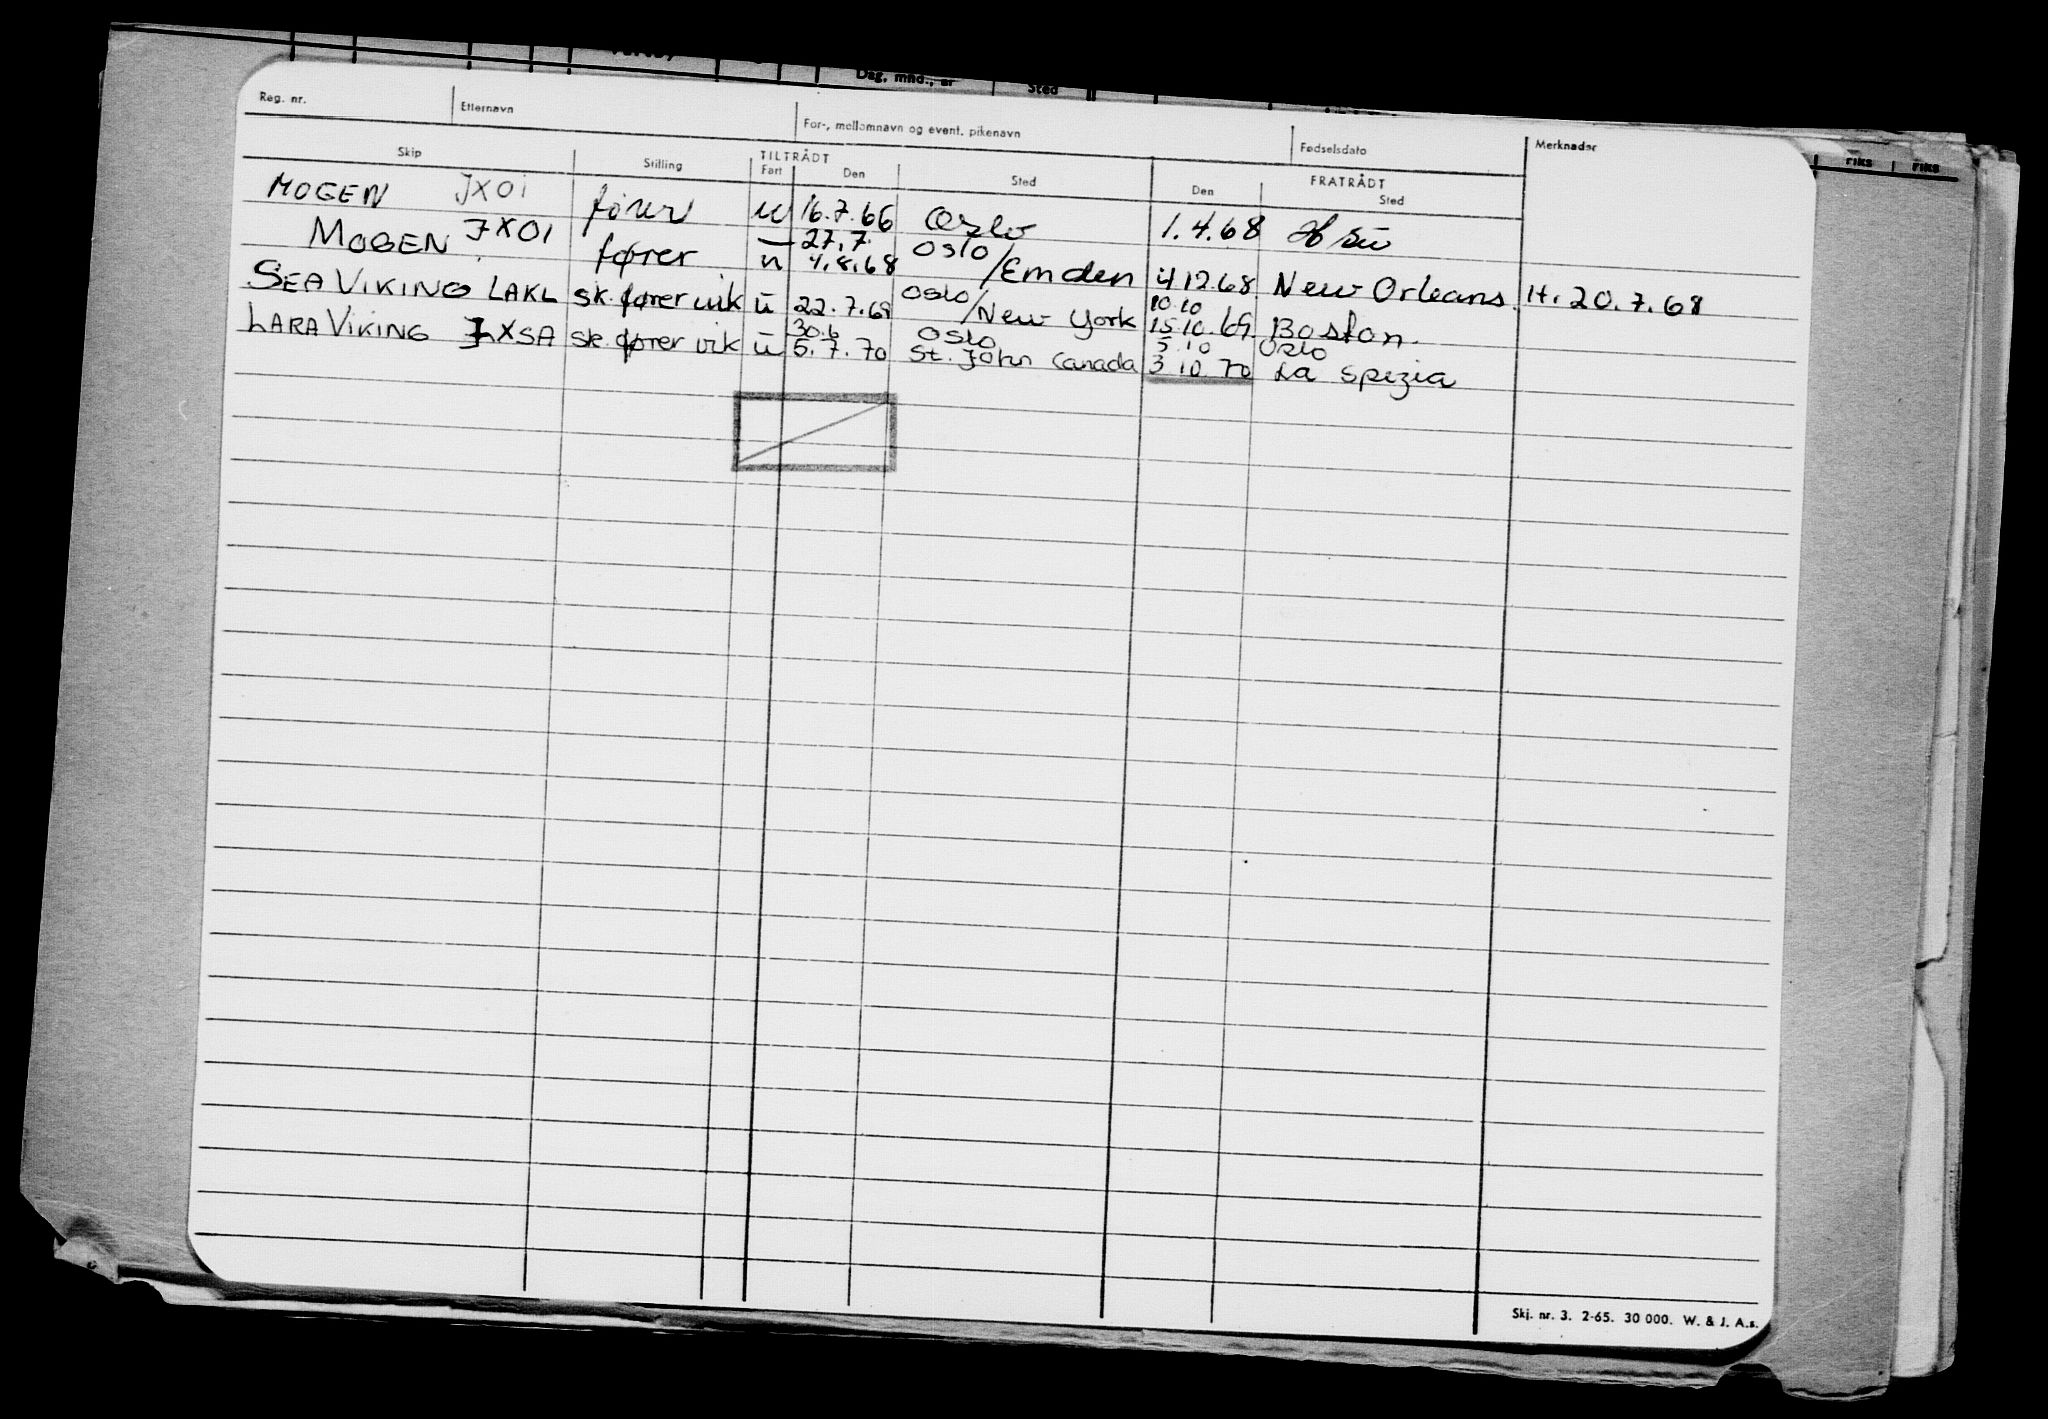 Dag, mnd., år Sted
Reg. nr. Etternavn For-, mellomnavn og event. pikenavn Fødselsdato Merknader
riks riks
Skip Stilling TILTRÅDT FRATRÅDT
Fart Den Sted Den Sted
MOGEN JXOI fører u 16.7.66 Oslo 1.4.68
27.7. Oslo
MOGEN JXOI fører u 4.8.68 /Emden 4 12.68 New Orleans. H. 20.7.68
Oslo 10.10
SEA VIKING LAKL sk.fører vik u 22.7.69 /New York 15 10.69 Boston.
30.6 Oslo 5.10 Oslo
LARA VIKING LXSA sk.fører vik u 5.7.70 St. John Canada 3 10 70 La Spezia
Skj. nr. 3. 2-65. 30 000. W. & J. A.s.